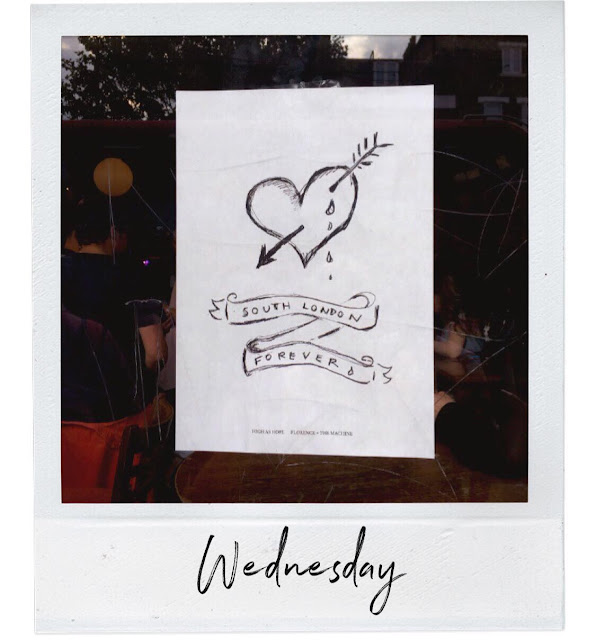 SOUTH LONDON
FOREVER
HIGH AS HOPE FLORENCE + THE MACHINE
Wednesday